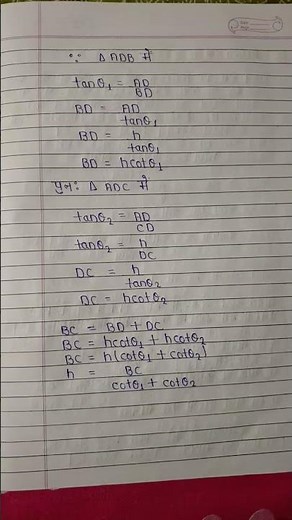 ∵ Δ ADB में
tanθ₁ = AD/BD
BD = AD/tanθ₁
BD = h/tanθ₁
BD = hcotθ₁
पुनः Δ ADC में
tanθ₂ = AD/CD
tanθ₂ = h/DC
DC = h/tanθ₂
DC = hcotθ₂
BC = BD + DC
BC = hcotθ₁ + hcotθ₂
BC = h(cotθ₁ + cotθ₂)
h = BC/cotθ₁ + cotθ₂